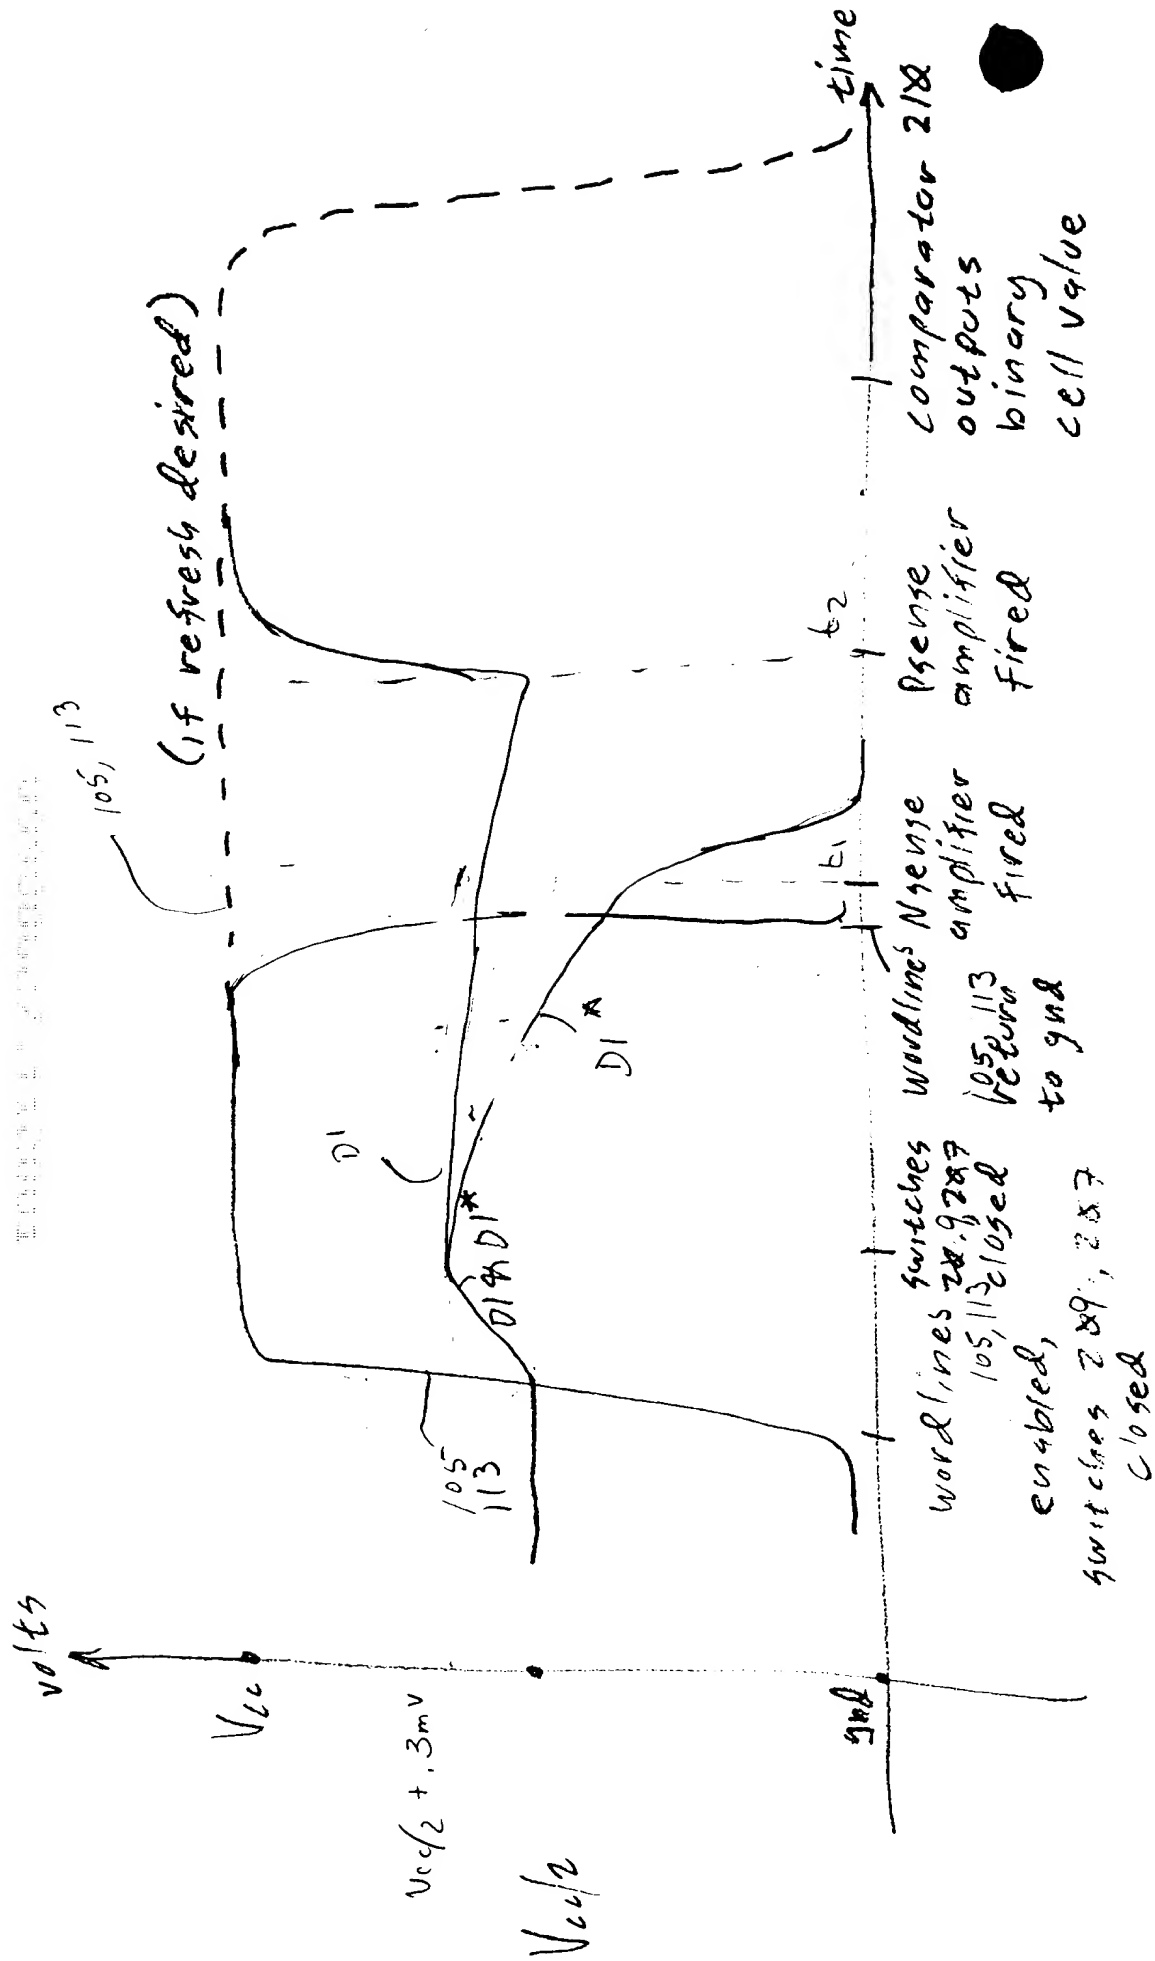 volts
Vcc
Vcc/2 + .3mV
Vcc/2
gnd
105
113
D1 & D1*
D1
D1*
105, 113
(if refresh desired)
t1
t2
time
wordlines
105, 113
enabled,
switches
closed
switches
closed
wordlines
105, 113
return
to gnd
Nsense
amplifier
fired
Psense
amplifier
fired
comparator 218
outputs
binary
cell value